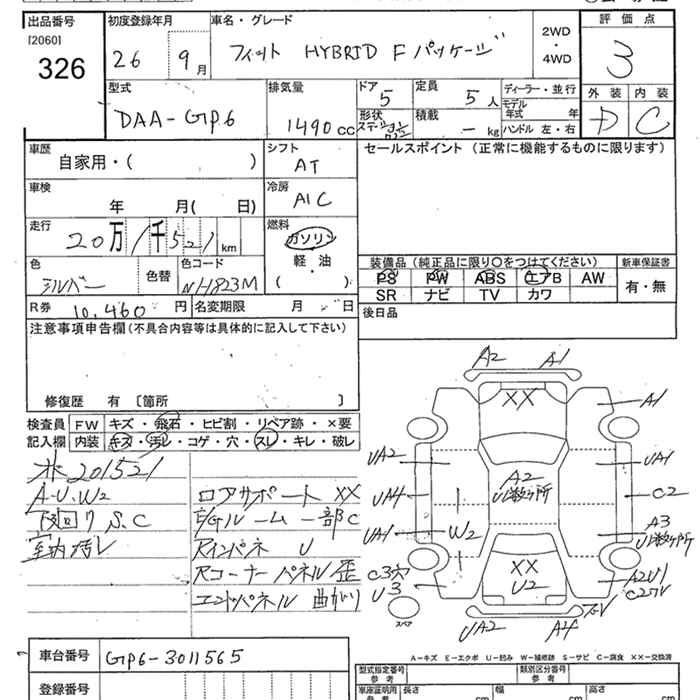 出品番号 初度登録年月 車名・グレード 評価点
[2060] 326 26 9月 フィット HYBRID F パッケージ 2WD・4WD 3
型式 排気量 ドア 定員 ディーラー・並行 外装 内装
DAA-GP6 1490cc 5 5人 モデル年式 年 D C
形状 積載 -kg ハンドル 左・右
車歴 シフト セールスポイント (正常に機能するものに限ります)
自家用・( ) AT
車検 冷房
年 月( 日) A/C
走行 燃料
20万1千521km ガソリン
軽・油
( )
装備品 (純正品に限り○をつけてください) 新車保証書
色 色替 色コード PS PW ABS エアB AW 有・無
シルバー NH823M SR ナビ TV カワ
R券 10,460円 名変期限 月 日 後日品
注意事項申告欄(不具合内容等は具体的に記入して下さい)
修復歴 有 〔箇所 〕
検査員 FW キズ・飛石・ヒビ割・リペア跡・×要
記入欄 内装 キズ・汚レ・コゲ・穴・スレ・キレ・破レ
201521
A.U.W2 ロアサポート XX
下回り S.C E/Gルーム 一部C
室内汚レ Rインパネ U
Rコーナーパネル歪
エンドパネル 曲がり
A2 A1
XX A1
UA2 UA1
A2
U多数ヶ所
UA4 C2
UA1 W2 A3
U多数ヶ所
XX
C3穴 U2 A2U1
U3
スペア UA2 A4
A-キズ E-エクボ U-凹み W-補修跡 S-サビ C-腐食 XX-交換済
車台番号 GP6-3011565 型式指定番号 参考 類別区分番号 参考
登録番号 車庫証明用 参考 長さ cm 幅 cm 高さ cm